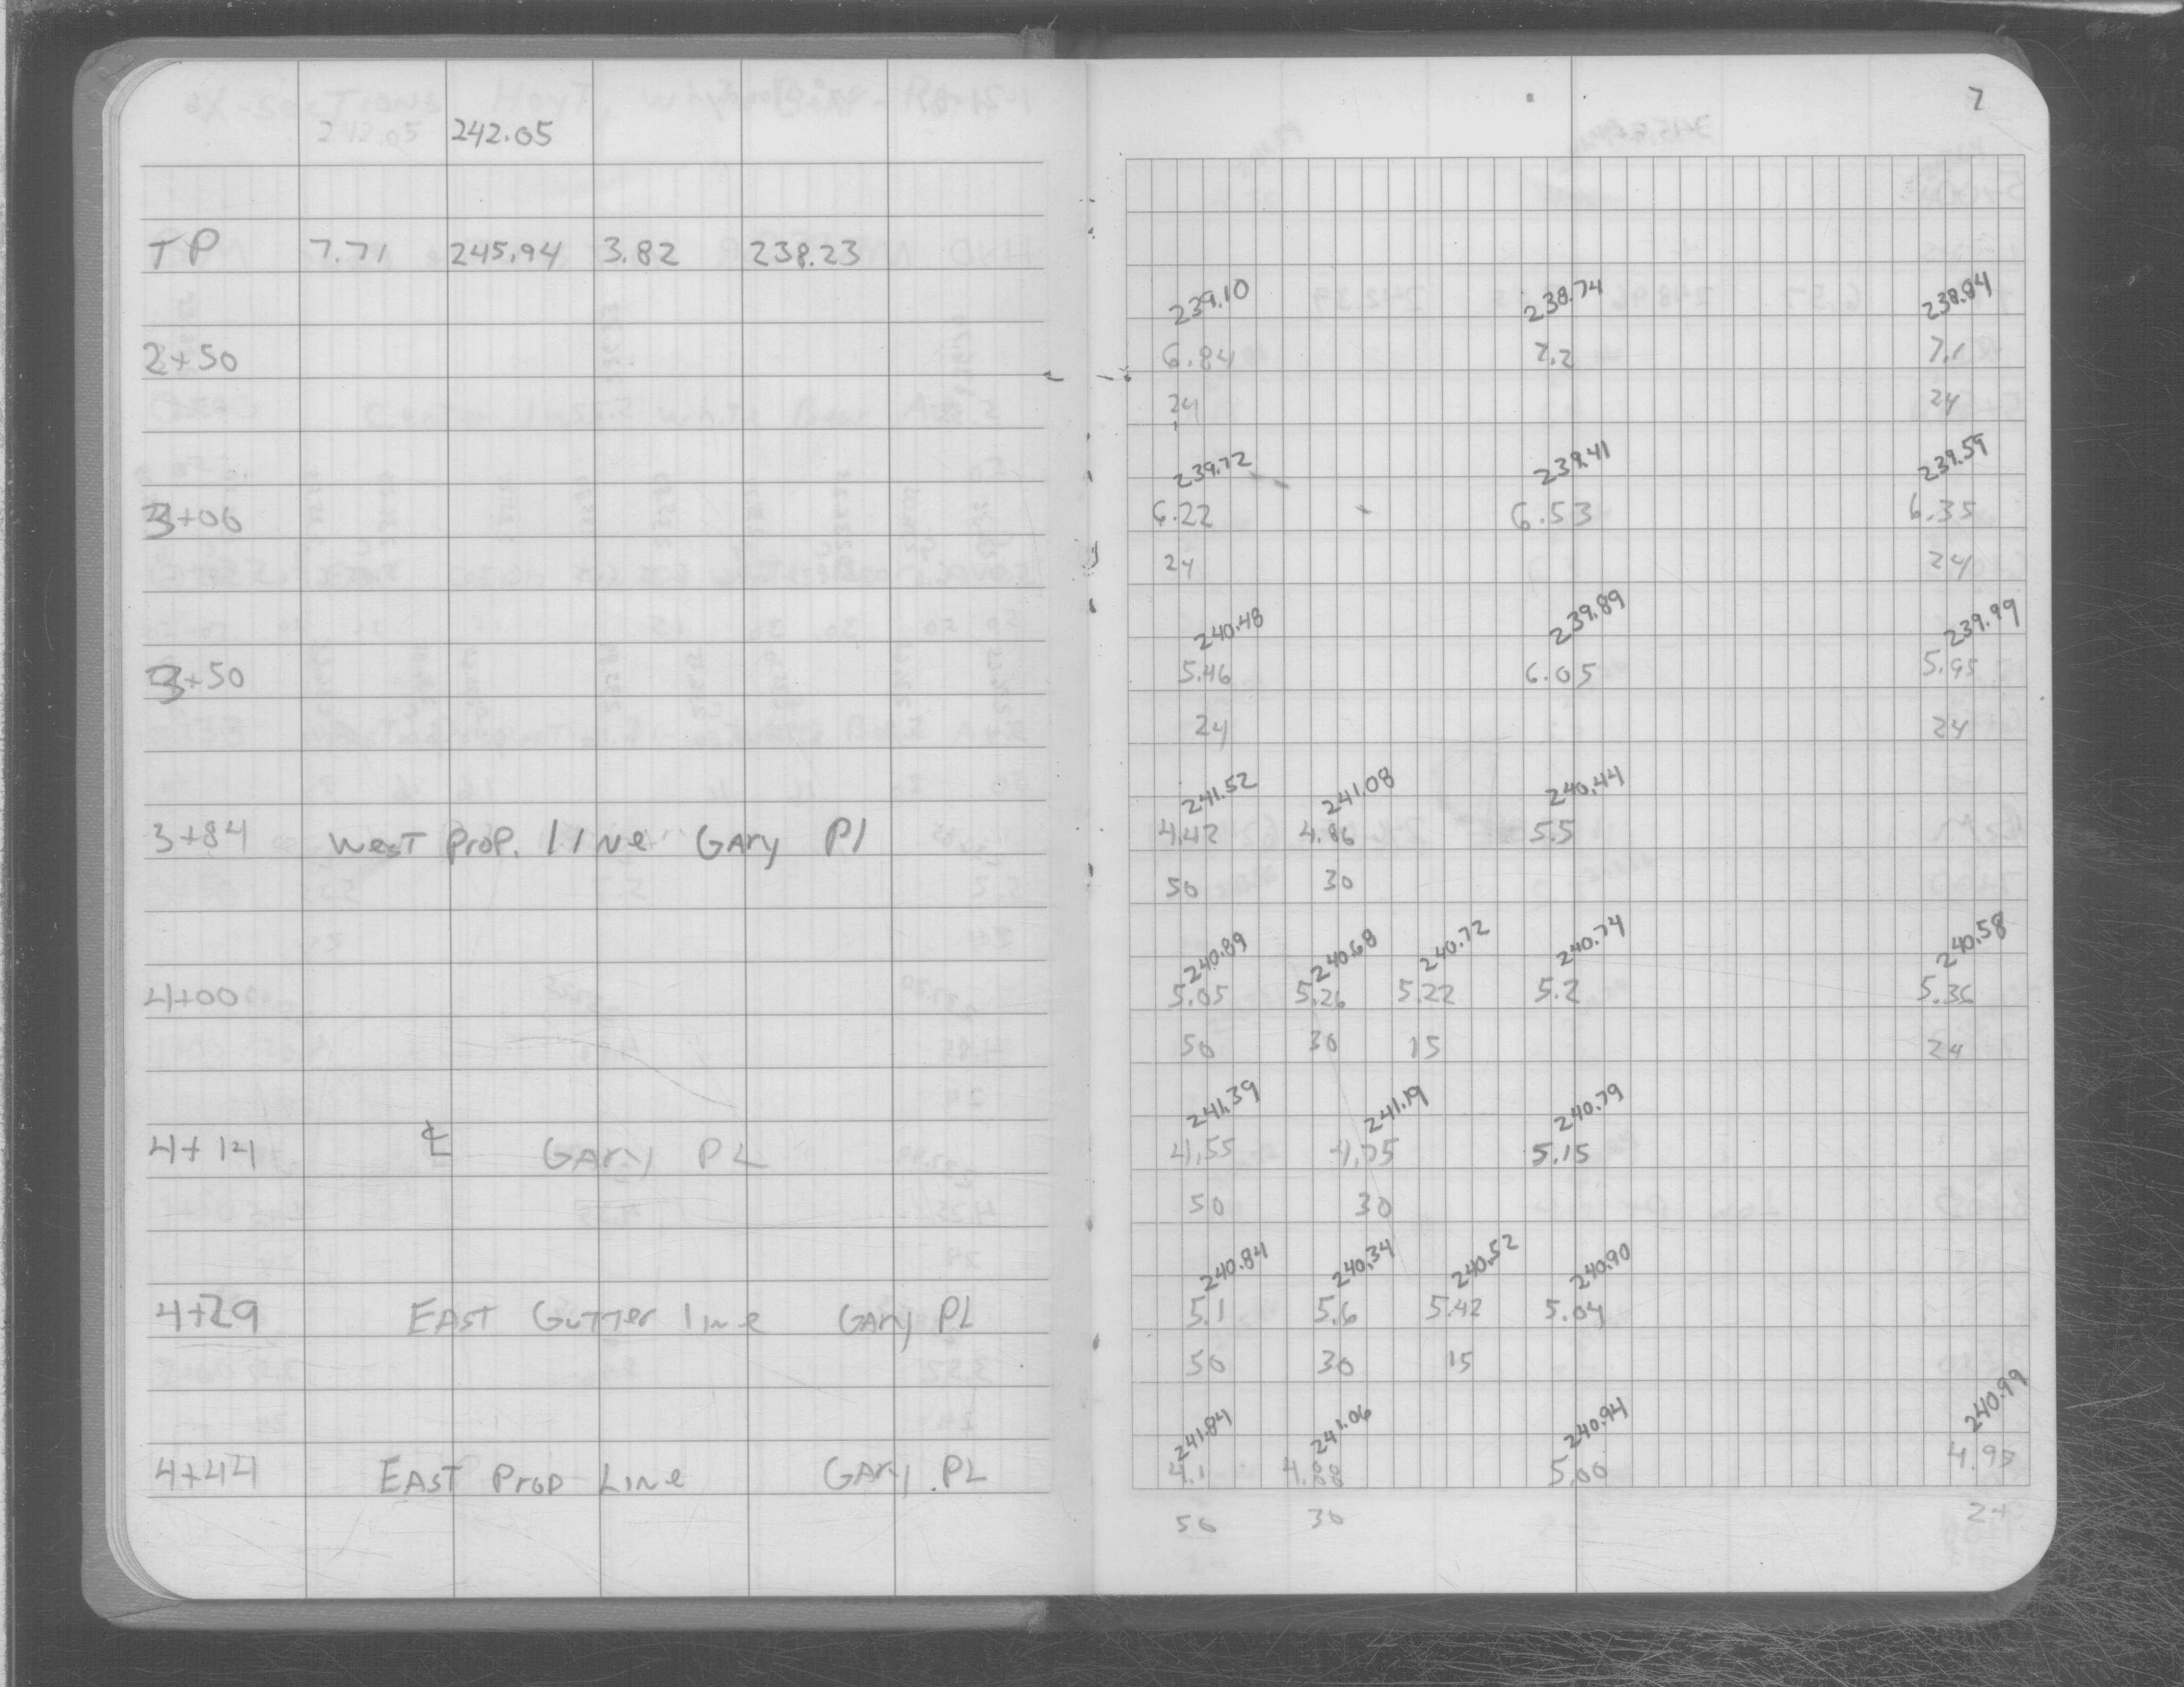 7
242.05 242.05
TP 7.71 245.94 3.82 238.23
239.10 238.74 238.84
2+50 6.84 7.2 7.1
24 24
239.72 239.41 239.59
3+00 6.22 6.53 6.35
24 24
240.48 239.89 239.99
3+50 5.46 6.05 5.95
24 24
241.52 241.08 240.44
3+84 West Prop. Line Gary Pl 4.42 4.86 5.5
50 30
240.89 240.68 240.72 240.74 240.58
4+00 5.05 5.26 5.22 5.2 5.36
50 30 15 24
241.39 241.19 240.79
4+14 ℄ Gary PL 4.55 4.75 5.15
50 30
240.84 240.34 240.52 240.90
4+29 EAST Gutter line Gary PL 5.1 5.6 5.42 5.04
50 30 15
241.84 241.06 240.94 240.99
4+44 EAST Prop Line Gary PL 4.1 4.88 5.00 4.95
50 30 24